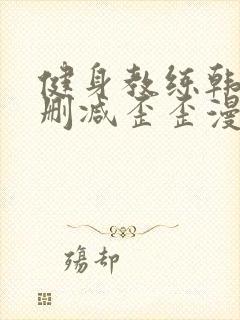 健身教练韩
删减歪歪漫
殇却